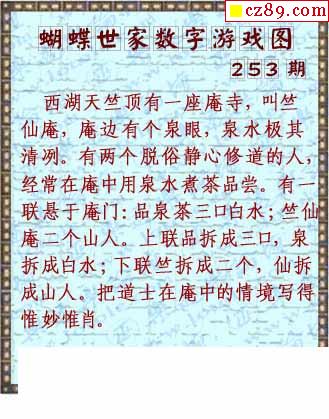 cz89.com
蝴蝶世家数字游戏图
253 期
西湖天竺顶有一座庵寺，叫竺
仙庵，庵边有个泉眼，泉水极其
清冽。有两个脱俗静心修道的人，
经常在庵中用泉水煮茶品尝。有一
联悬于庵门：品泉茶三口白水；竺仙
庵二个山人。上联品拆成三口，泉
拆成白水；下联竺拆成二个，仙拆
成山人。把道士在庵中的情境写得
惟妙惟肖。